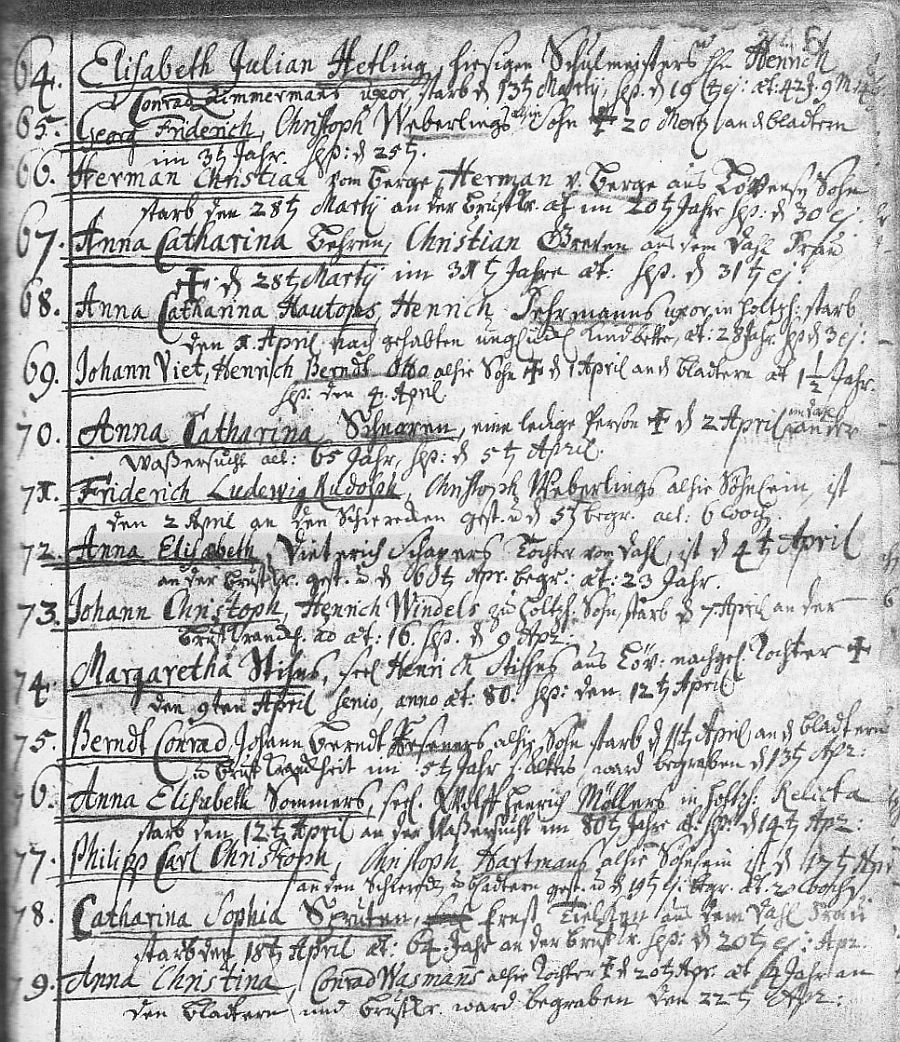 64. Elisabeth Julian Hetling, hiesigen Schulmeisters H. Henrich
Conrad Zimmermans uxor, starb d 13t Martij, sep. d 19 ej: æt: 42 J. 9 M
65. Georg Friderich, Christoph Weberlings alhie Sohn ✝ 20 Mertz an d bladtern
im 3t Jahr. sep: d 25t.
66. Herman Christian vom Berge, Herman v. Berge aus Sohn
starb den 28t Martij an der Brustkr. æt im 20t Jahr sep: d 30 ej.
67. Anna Catharina Behren, Christian Greven aus dem Dahl Frau
✝ d 28t Martij im 31t Jahre æt: sep. d 31t ej:
68. Anna Catharina Hautops, Henrich Fehrmanns uxor, in Holtzh: starb
den 1. April nach gehabten Kindbette, æt: 28 Jahr sep d 3 ej:
69. Johann Viet, Henrich Berndt Otto alhie Sohn ✝ d 1 April an d bladtern æt 1½ Jahr.
sep: den 4. April
70. Anna Catharina Schnaren, eine ledige Person ✝ d 2 April an der
Waßersucht aet: 65 Jahr, sep: d 5t April.
71. Friderich Ludewig Rudolph, Christoph Weberlings alhie Söhnlein, ist
den 2 April an den Schierecken gest. u d 5t begr. aet: 6 woch.
72. Anna Elisabeth, Dieterich Schapers Tochter vom Dahl, ist d 4t April
an der Brustkr. gest. u. d 6t Apr. begr: æt: 23 Jahr.
73. Johann Christoph, Henrich Windels zu Holtzh. Sohn, starb d 7 April an der
Brustkrankh. æt: 16. sep. d 9 Apr:
74. Margaretha Stihns, seel. Henrich Stihns aus Löv: nachgel. Tochter ✝
den 9ten April senio, anno æt. 80. sep: den 12t April
75. Berndt Conrad, Johann Berndt alhie Sohn starb d 11t April an d bladtern
u Brustkrankheit im 5t Jahr s. alters, ward begraben d 13t Apr:
76. Anna Elisabeth Sommers, seel. Wolff Henrich Möllers in Holtzh: Relicta
starb den 12t April an der Waßersucht im 80t Jahre æt: sep: d 14t Apr:
77. Philipp Carl Christoph, Christoph Hartmans alhie Söhnlein ist d 17t Apr
an den u bladtern gest. u d 19t ej. begr. æt. 20 woch
78. Catharina Sophia Spruten, Ernst Tielken aus dem Dahl Frau
starb den 18t April æt: 64 Jahr an der Brustkr. sep: d 20t ej: Apr:
79. Anna Christina, Conrad Wasmans alhie Tochter ✝ d 20t Apr. æt 4 Jahr an
den bladtern und Brustkr. ward begraben den 22t Apr: